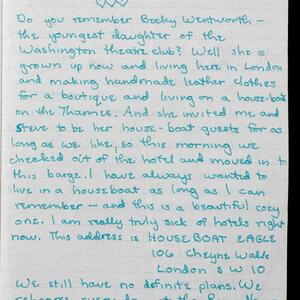 Do you remember Becky Wentworth —
the youngest daughter of the
Washington theatre club? Well she is
grown up now and living here in London
and making handmade leather clothes
for a boutique and living on a house-boat
on the Thames. And she invited me and
Steve to be her house-boat guests for as
long as we like, so this morning we
checked out of the hotel and moved in to
this barge. I have always wanted to
live in a houseboat as long as I can
remember — and this is a beautiful cozy
one. I am really truly sick of hotels right
now. This address is HOUSEBOAT EAGLE
106 Cheyne Walk
London S W 10
We still have no definite plans. We